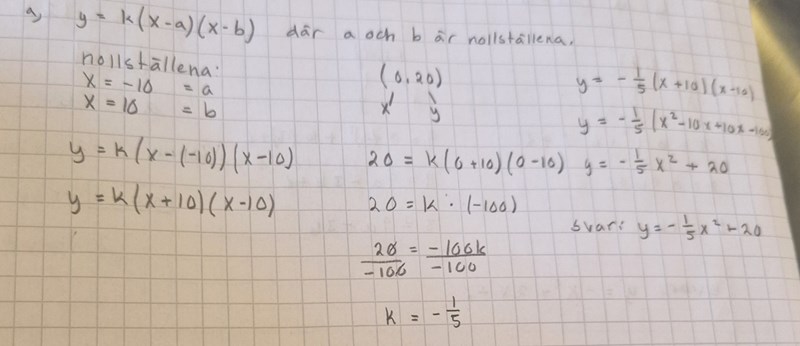 a) y = k(x-a)(x-b) där a och b är nollställena.
nollställena:
x = -10 = a
x = 10 = b
y = k(x-(-10))(x-10)
y = k(x+10)(x-10)
(0,20)
x y
20 = k(0+10)(0-10)
20 = k · (-100)
20/-100 = -100k/-100
k = -1/5
y = -1/5 (x+10)(x-10)
y = -1/5 (x²-10x+10x-100)
y = -1/5 x² + 20
svar: y = -1/5 x² + 20